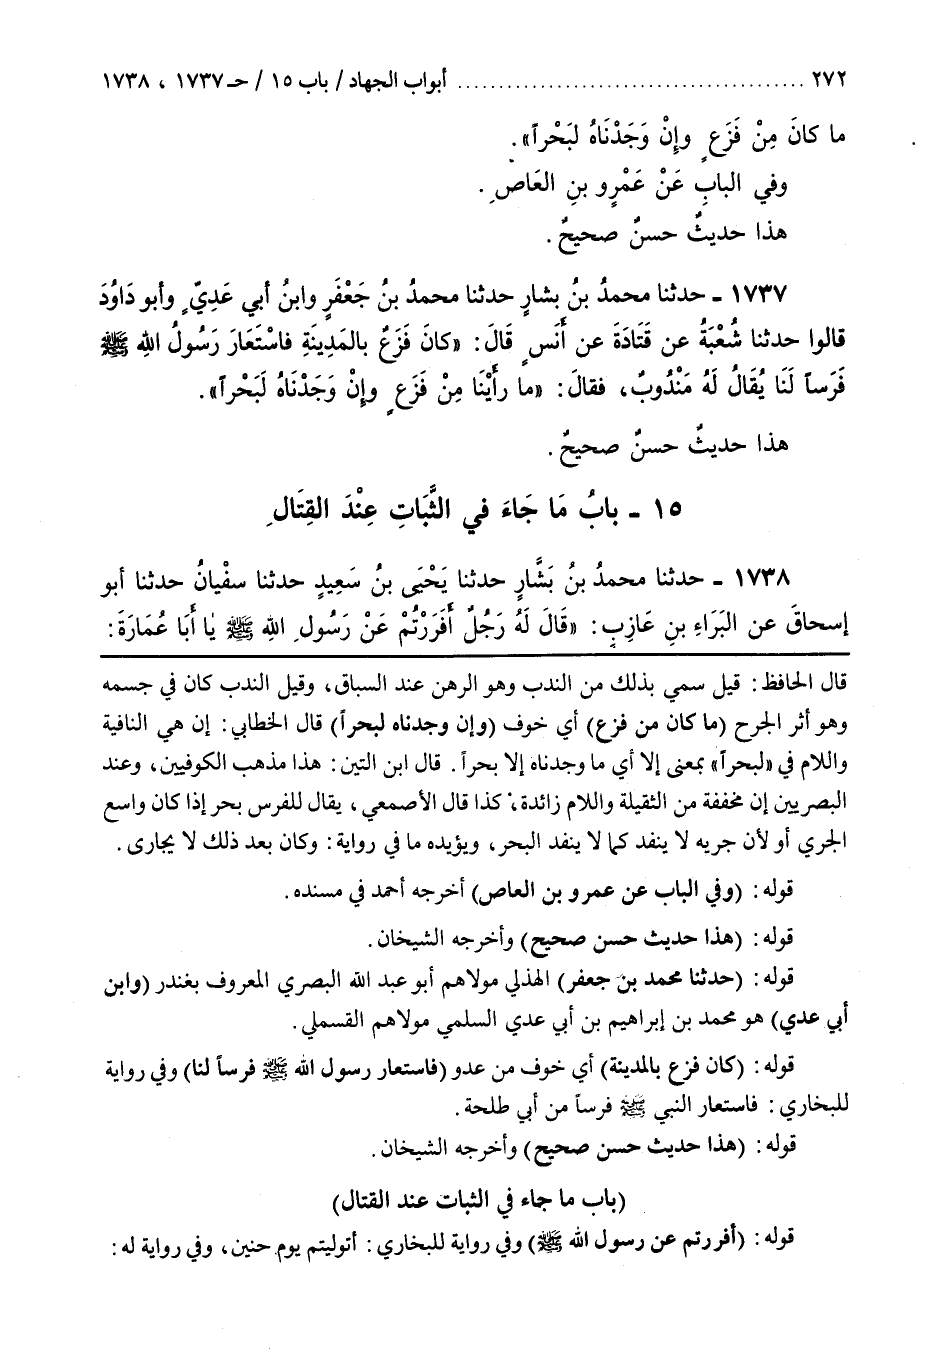 ٢٧٢ ........................................ أبواب الجهاد/ باب ١٥ / حـ ١٧٣٧ ، ١٧٣٨
ما كانَ مِنْ فَزَعٍ وإِنْ وَجَدْنَاهُ لَبَحْراً».
وفي البابِ عَنْ عَمْرِو بنِ العَاصِ.
هذا حديثٌ حسنٌ صحيحٌ.
١٧٣٧ ـ حدثنا محمدُ بنُ بشارٍ حدثنا محمدُ بنُ جَعْفَرٍ وابنُ أبي عَدِيٍّ وأبو دَاوُدَ
قالوا حدثنا شُعْبَةُ عن قَتَادَةَ عن أَنَسٍ قَالَ: «كانَ فَزَعٌ بالمَدِينَةِ فاسْتَعَارَ رَسُولُ اللهِ ﷺ
فَرَساً لَنَا يُقَالُ لَهُ مَنْدُوبٌ، فقالَ: «ما رأَيْنَا مِنْ فَزَعٍ وإِنْ وَجَدْنَاهُ لَبَحْراً».
هذا حديثٌ حسنٌ صحيحٌ.
١٥ ـ بابُ مَا جَاءَ في الثَّبَاتِ عِنْدَ القِتَالِ
١٧٣٨ ـ حدثنا محمدُ بنُ بَشَّارٍ حدثنا يَحْيَى بنُ سَعِيدٍ حدثنا سفْيانُ حدثنا أبو
إسحاقَ عن البَرَاءِ بنِ عَازِبٍ: «قَالَ لَهُ رَجُلٌ أَفَرَرْتُمْ عَنْ رَسُولِ اللهِ ﷺ يٰا أَبَا عُمَارَةَ:
قال الحافظ: قيل سمي بذلك من الندب وهو الرهن عند السباق، وقيل الندب كان في جسمه
وهو أثر الجرح (ما كان من فزع) أي خوف (وإن وجدناه لبحراً) قال الخطابي: إن هي النافية
واللام في «لبحراً» بمعنى إلا أي ما وجدناه إلا بحراً. قال ابن التين: هذا مذهب الكوفيين، وعند
البصريين إن مخففة من الثقيلة واللام زائدة، كذا قال الأصمعي، يقال للفرس بحر إذا كان واسع
الجري أو لأن جريه لا ينفد كما لا ينفد البحر، ويؤيده ما في رواية: وكان بعد ذلك لا يجارى.
قوله: (وفي الباب عن عمرو بن العاص) أخرجه أحمد في مسنده.
قوله: (هذا حديث حسن صحيح) وأخرجه الشيخان.
قوله: (حدثنا محمد بن جعفر) الهذلي مولاهم أبو عبد الله البصري المعروف بغندر (وابن
أبي عدي) هو محمد بن إبراهيم بن أبي عدي السلمي مولاهم القسملي.
قوله: (كان فزع بالمدينة) أي خوف من عدو (فاستعار رسول الله ﷺ فرساً لنا) وفي رواية
للبخاري: فاستعار النبي ﷺ فرساً من أبي طلحة.
قوله: (هذا حديث حسن صحيح) وأخرجه الشيخان.
(باب ما جاء في الثبات عند القتال)
قوله: (أفررتم عن رسول الله ﷺ) وفي رواية للبخاري: أتوليتم يوم حنين، وفي رواية له: